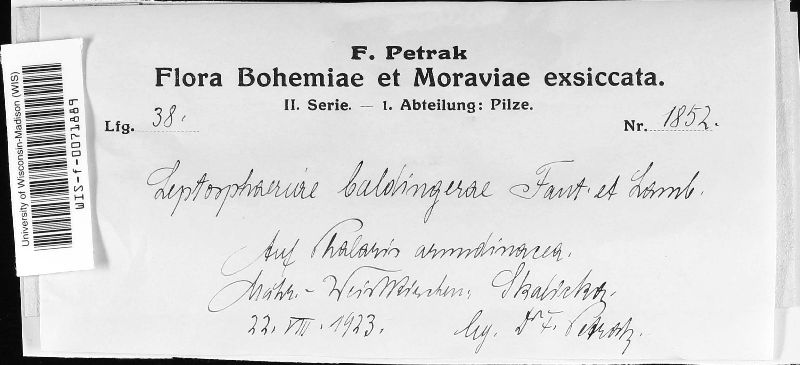 F. Petrak
Flora Bohemiae et Moraviae exsiccata.
II. Serie. — 1. Abteilung: Pilze.
Lfg. 38.
Nr. 1852.
Leptosphaeriae baldingerae Faut. et Lamb.
Auf Phalaris arundinacea.
Mähr.-Weisskirchen: Skalicka.
22. VIII. 1923. leg. Dr F. Petrak.
University of Wisconsin-Madison (WIS)
WIS-f-0071889